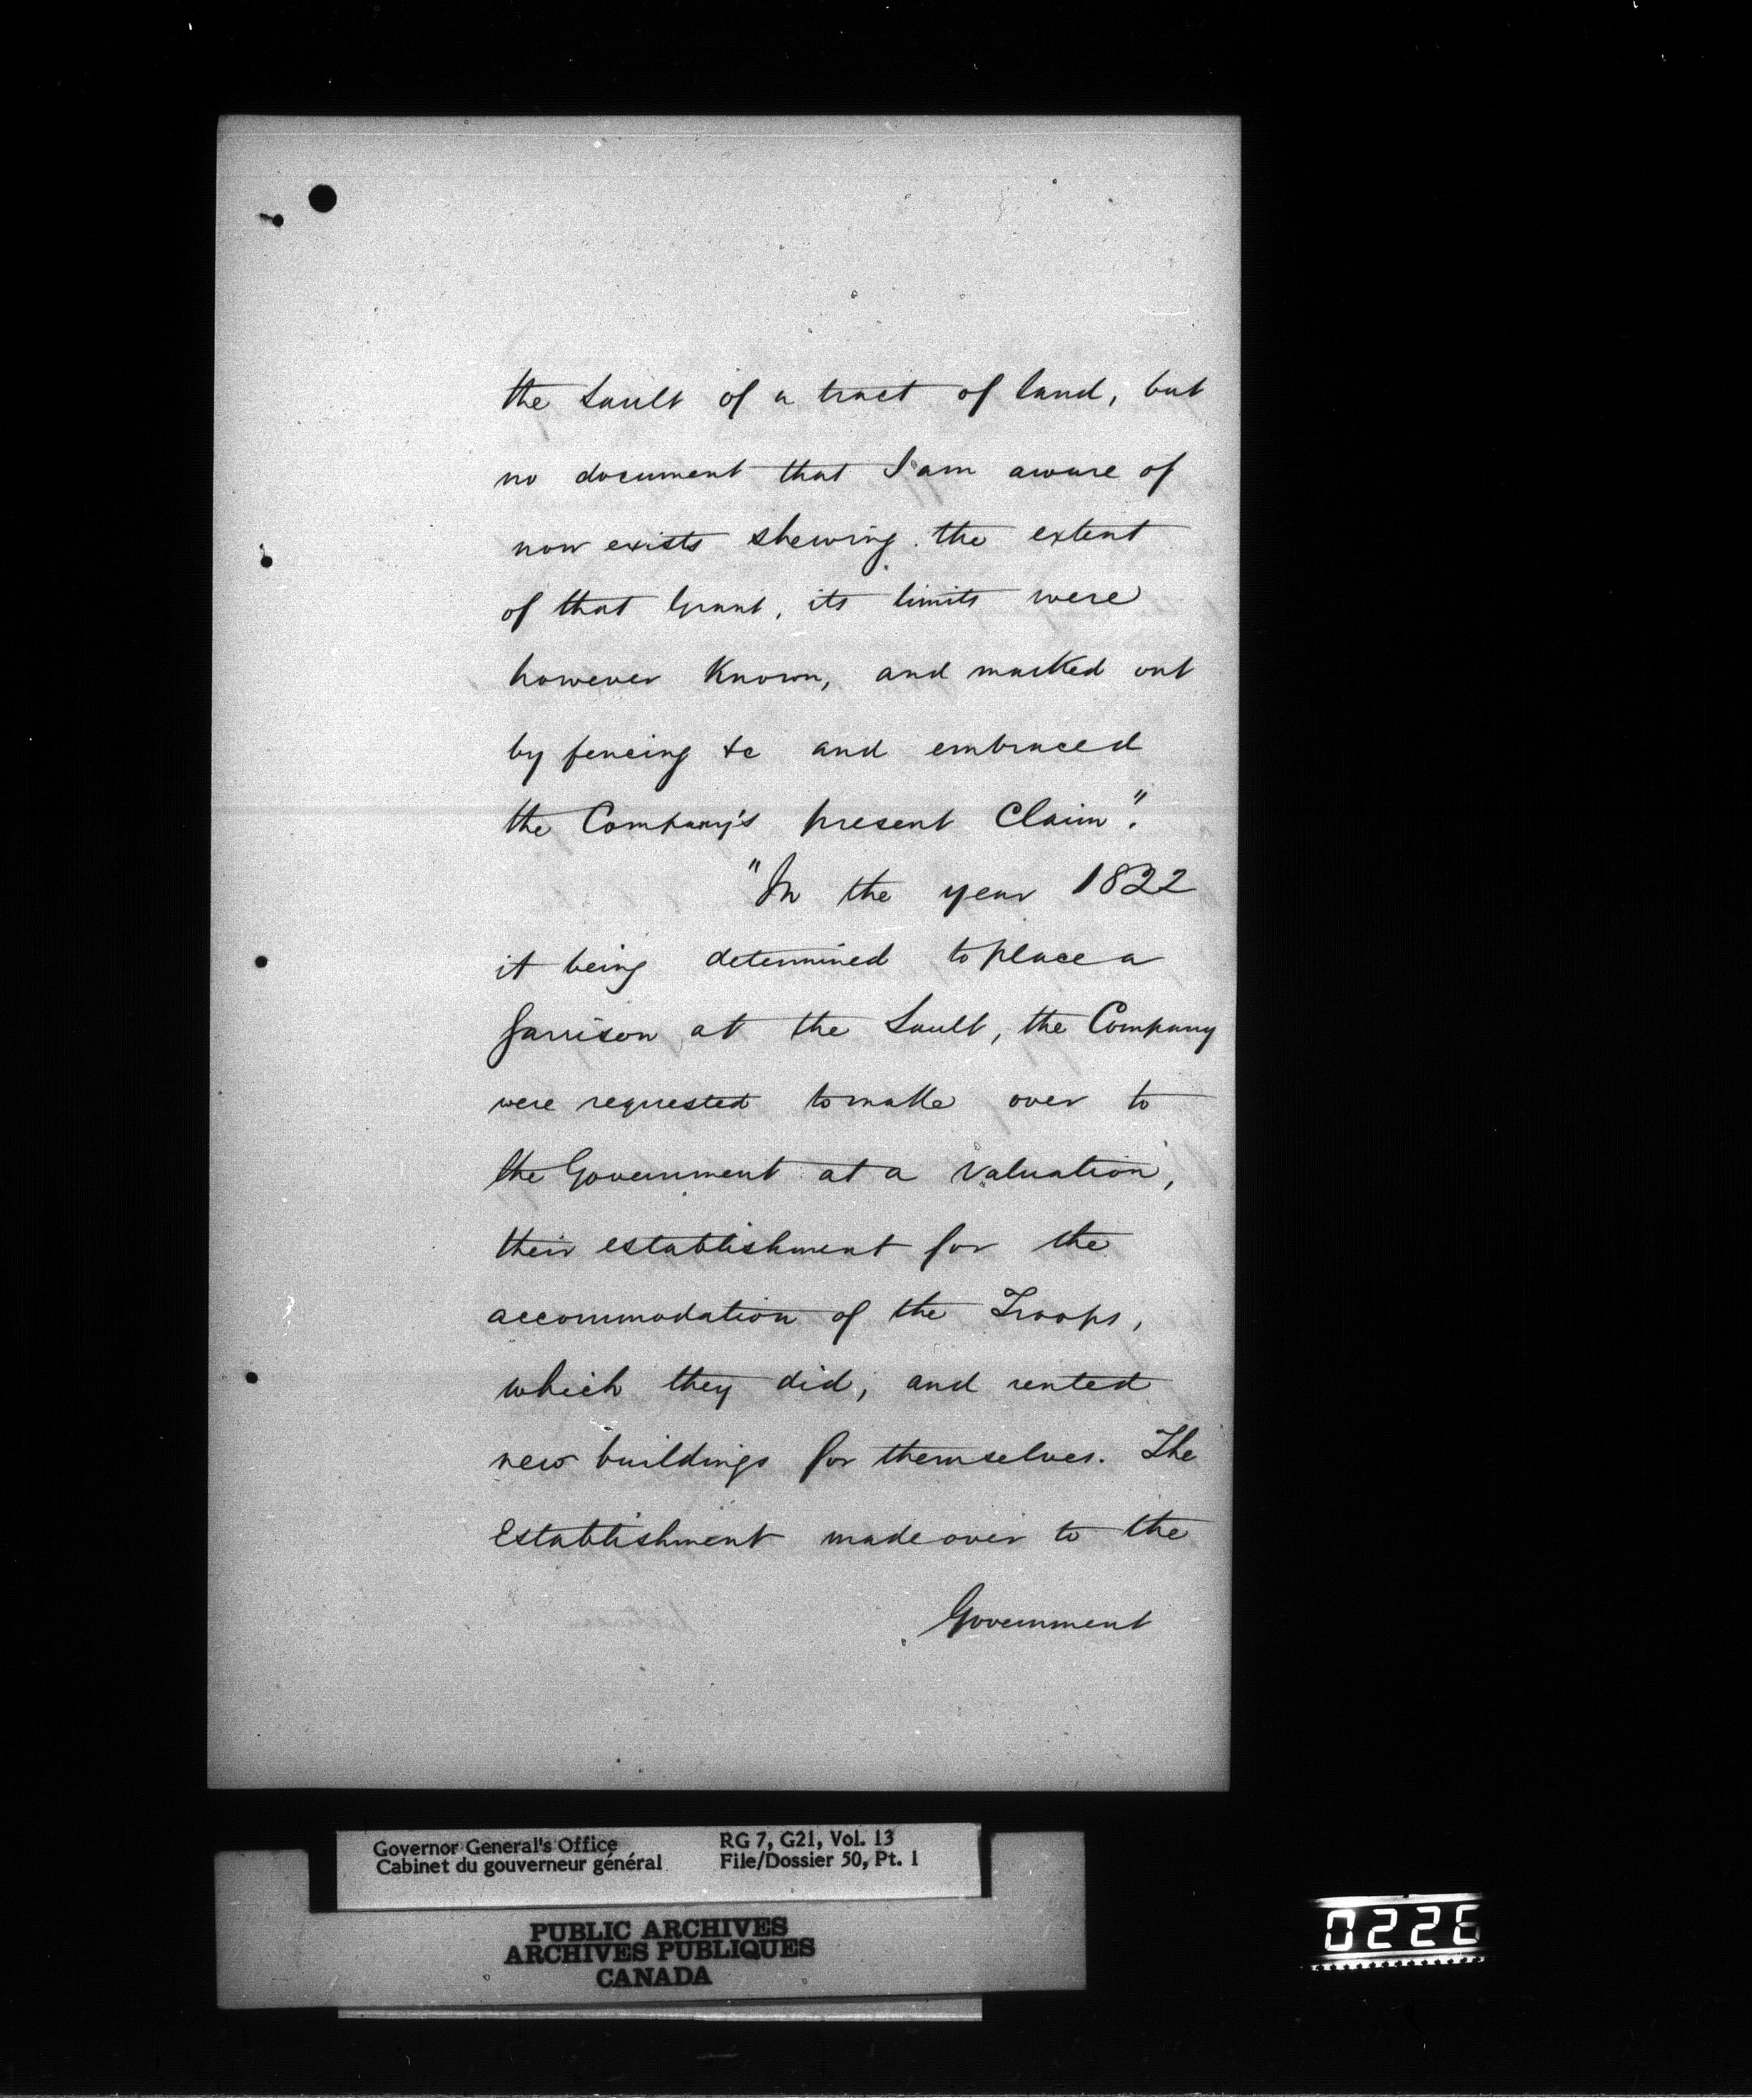 the Sault of a tract of land, but
no document that I am aware of
now exists shewing the extent
of that Grant, its limits were
however known, and marked out
by fencing &c and embraced
the Company's present Claim".
"In the year 1822
it being determined to place a
Garrison at the Sault, the Company
were requested to make over to
the Government at a valuation,
their establishment for the
accommodation of the Troops,
which they did, and rented
new buildings for themselves. The
Establishment made over to the
Government
Governor General's Office
Cabinet du gouverneur général
RG 7, G21, Vol. 13
File/Dossier 50, Pt. 1
PUBLIC ARCHIVES
ARCHIVES PUBLIQUES
CANADA
0226